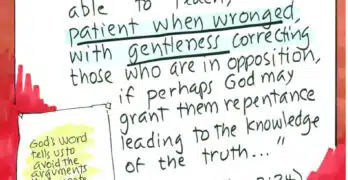 able to teach,
patient when wronged,
with gentleness correcting
those who are in opposition,
if perhaps God may
grant them repentance
leading to the knowledge
of the truth..."
2:24)
God's word
tells us to
avoid the
arguments